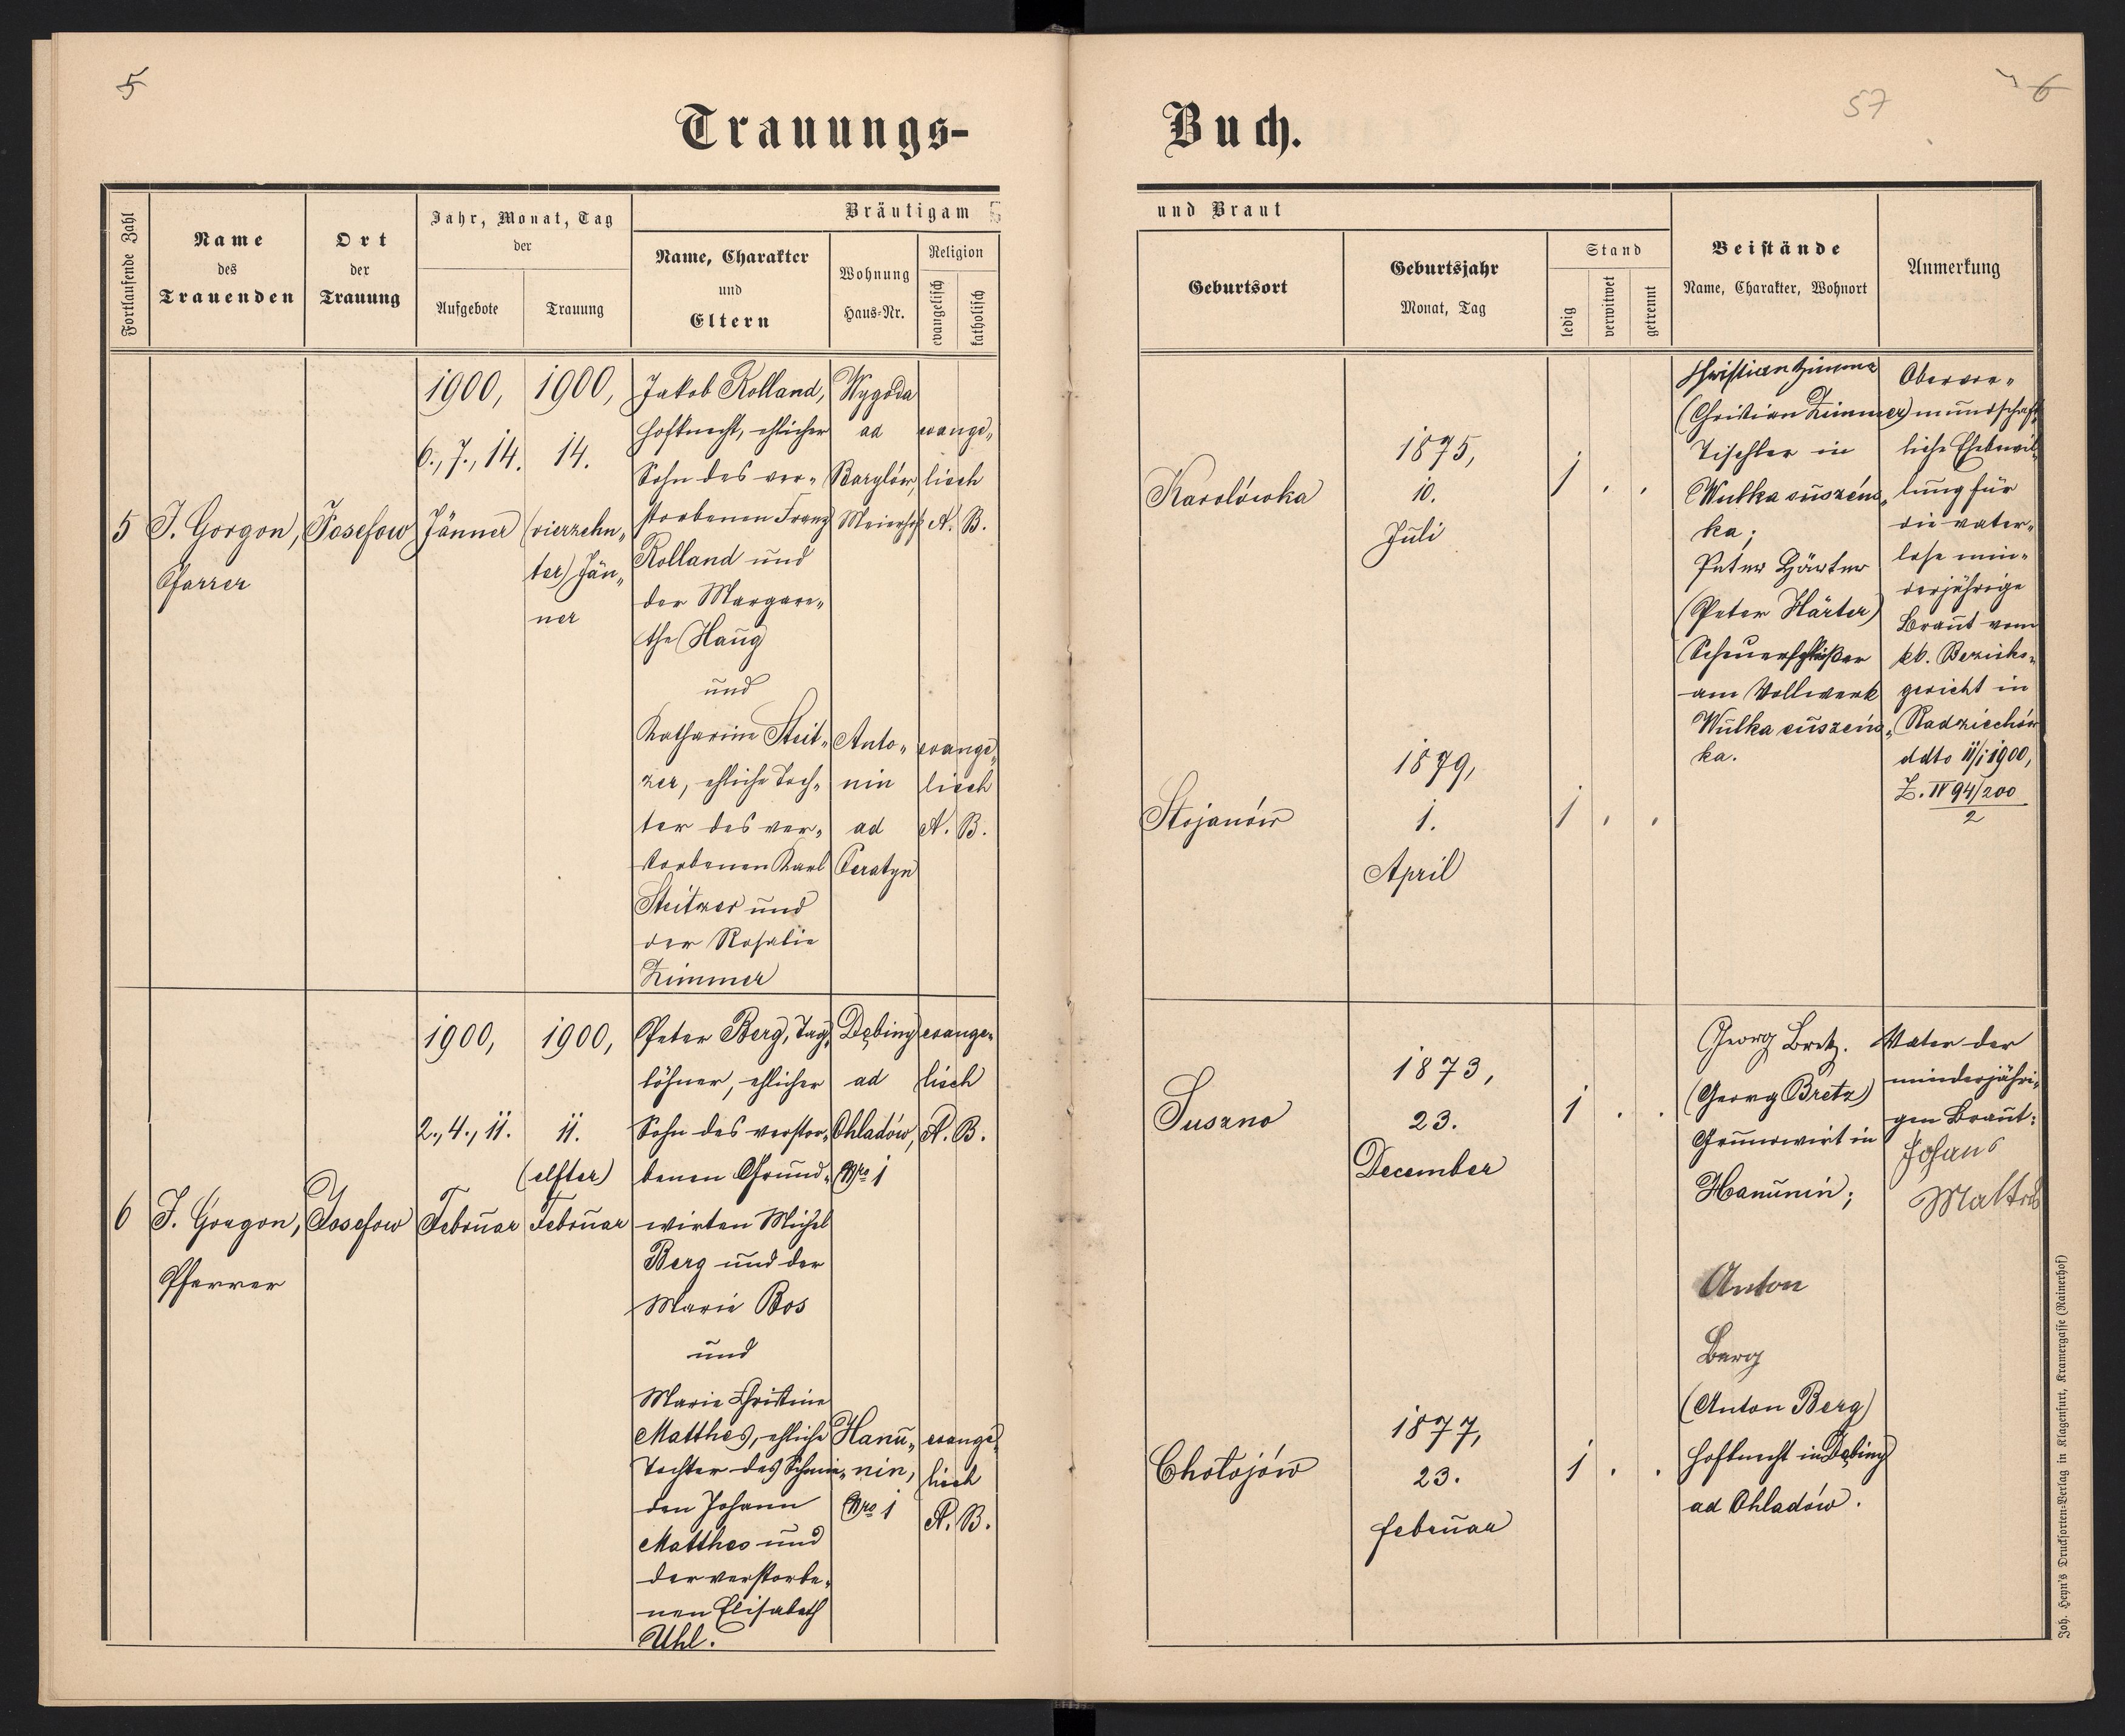 5
57
6
Trauungs-
Buch.
Fortlaufende Zahl
Name
des
Trauenden
Ort
der
Trauung
Jahr, Monat, Tag
der
Aufgebote
Trauung
Bräutigam
Name, Charakter
und
Eltern
Wohnung
Haus-Nr.
Religion
evangelisch
katholisch
und Braut
Geburtsort
Geburtsjahr
Monat, Tag
Stand
ledig
verwitwet
getrennt
Beistände
Name, Charakter, Wohnort
Anmerkung
5
J. Gorgon,
Pfarrer
Josefow
1900,
6., 7., 14.
Jänner
1900,
14.
(vierzehn„
ter) Jän„
ner
Jakob Rolland,
Hofknecht, ehlicher
Sohn des ver„
storbenen Franz
Rolland und
der Margare„
the Haug
und
Katharine Steit„
zer, ehliche Toch„
ter des ver„
storbenen Karl
Steitzer und
der Rosalie
Zimmer
Wygoda
ad
Barylów,
Meierhof
evange„
lisch
A. B.
Anto„
nin
ad
Peratyn
evange„
lisch
A. B.
Karolówka
1875,
10.
Juli
1 . .
Stojanów
1879,
1.
April
1 . .
Christian Zimmer
(Christian Zimmer)
Tischler in
Wulka suszéns„
ka;
Peter Härter
(Peter Härter)
am Vollwerk
Wulka suszéns„
ka.
Obervor„
mundschaft„
liche Ehebewil„
lung für
die vater„
lose min„
derjährige
Braut vom
kk. Bezirks„
gericht in
Radziechów
ddto 11/1 1900,
Z. IV 94/200
2
6
J. Gorgon,
Pfarrer
Josefow
1900,
2., 4., 11.
Februar
1900,
11.
(elfter)
Februar
Peter Berg, Tag„
löhner, ehlicher
Sohn des verstor„
benen Grund„
wirten Michel
Berg und der
Marie Bos
und
Marie Christine
Matthes, ehliche
Tochter des Schmie„
den Johann
Matthes und
der verstorbe„
nen Elisabeth
Uhl.
Dębiny
ad
Ohladów,
Nro 1
evange„
lisch
A. B.
Hanu„
nin,
Nro 1
evange„
lisch
A. B.
Suszno
1873,
23.
December
1 . .
Chołojów
1877,
23.
Februar
1 . .
Georg Bretz.
(Georg Bretz)
Grundwirt in
Hanunin;
Anton
Berg
(Anton Berg)
Hofknecht in Dębiny
ad Ohladów.
Vater der
minderjähri„
gen Braut:
Johans
Mattes
Joh. Heyn's Drucksorten-Verlag in Klagenfurt, Kramergasse (Rainerhof)